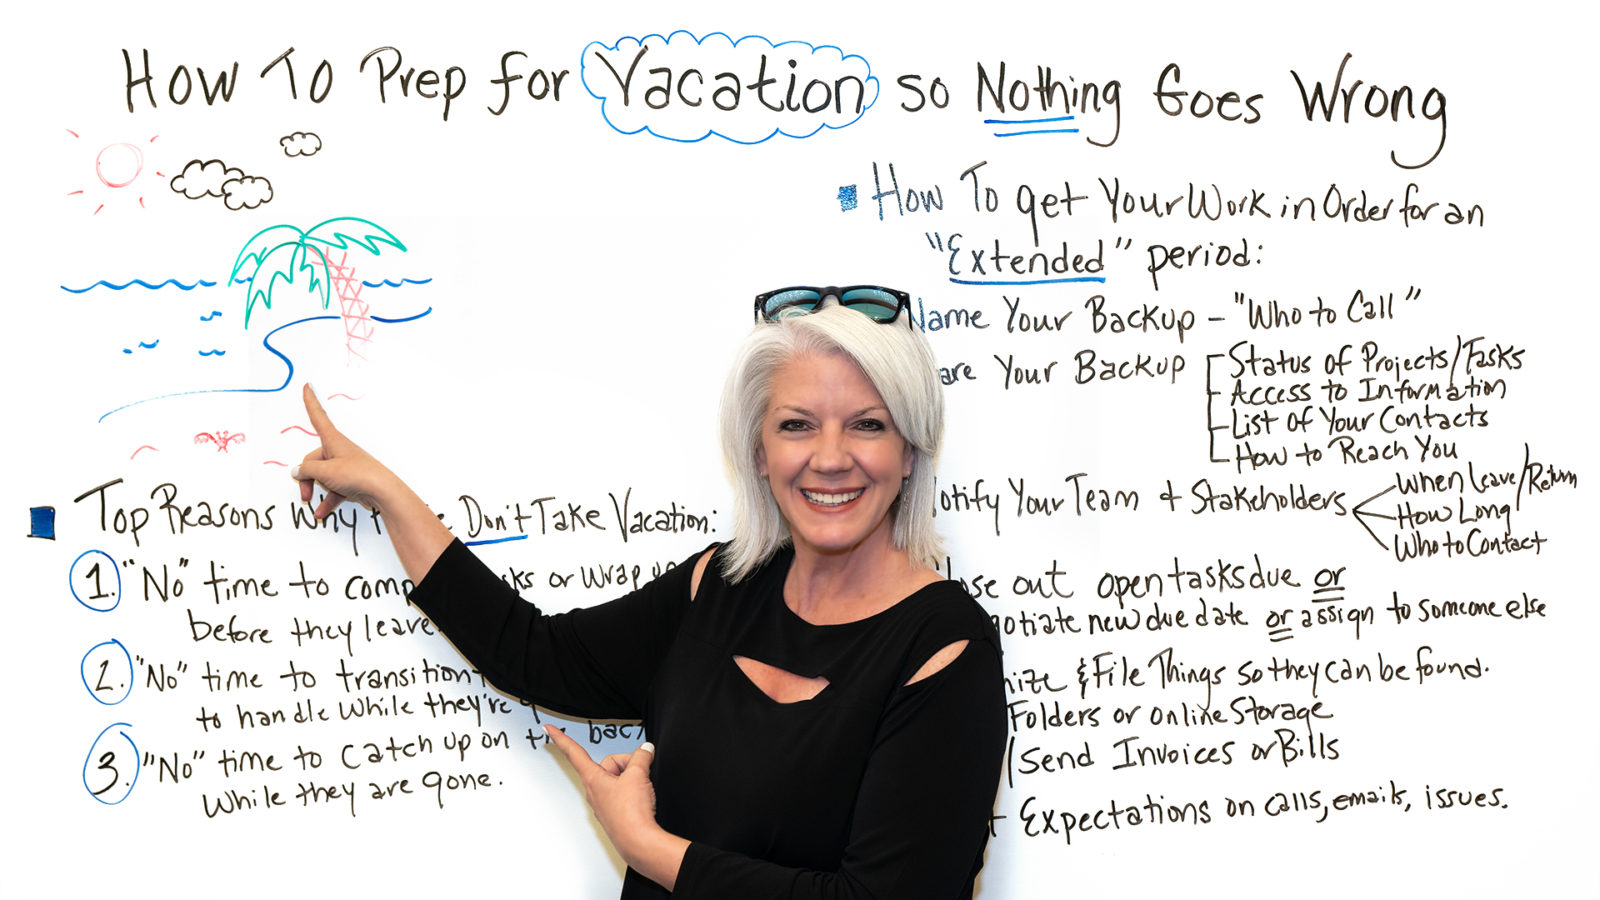 How To Prep for Vacation so Nothing Goes Wrong
Top Reasons Why Don't Take Vacation:
1. "No" time to or wrap up
before they leave
2. "No" time to transition
to handle while they're
3. "No" time to catch up on the back
while they are gone.
How To get Your Work in Order for an
"Extended" period:
Name Your Backup - "Who to Call"
Your Backup
Status of Projects/Tasks
Access to Information
List of Your Contacts
How to Reach You
Notify Your Team + Stakeholders
When Leave/Return
How Long
Who to Contact
out open tasks due or
new due date or assign to someone else
& File Things so they can be found.
Folders or online Storage
/Send Invoices or Bills
Expectations on calls, emails, issues.